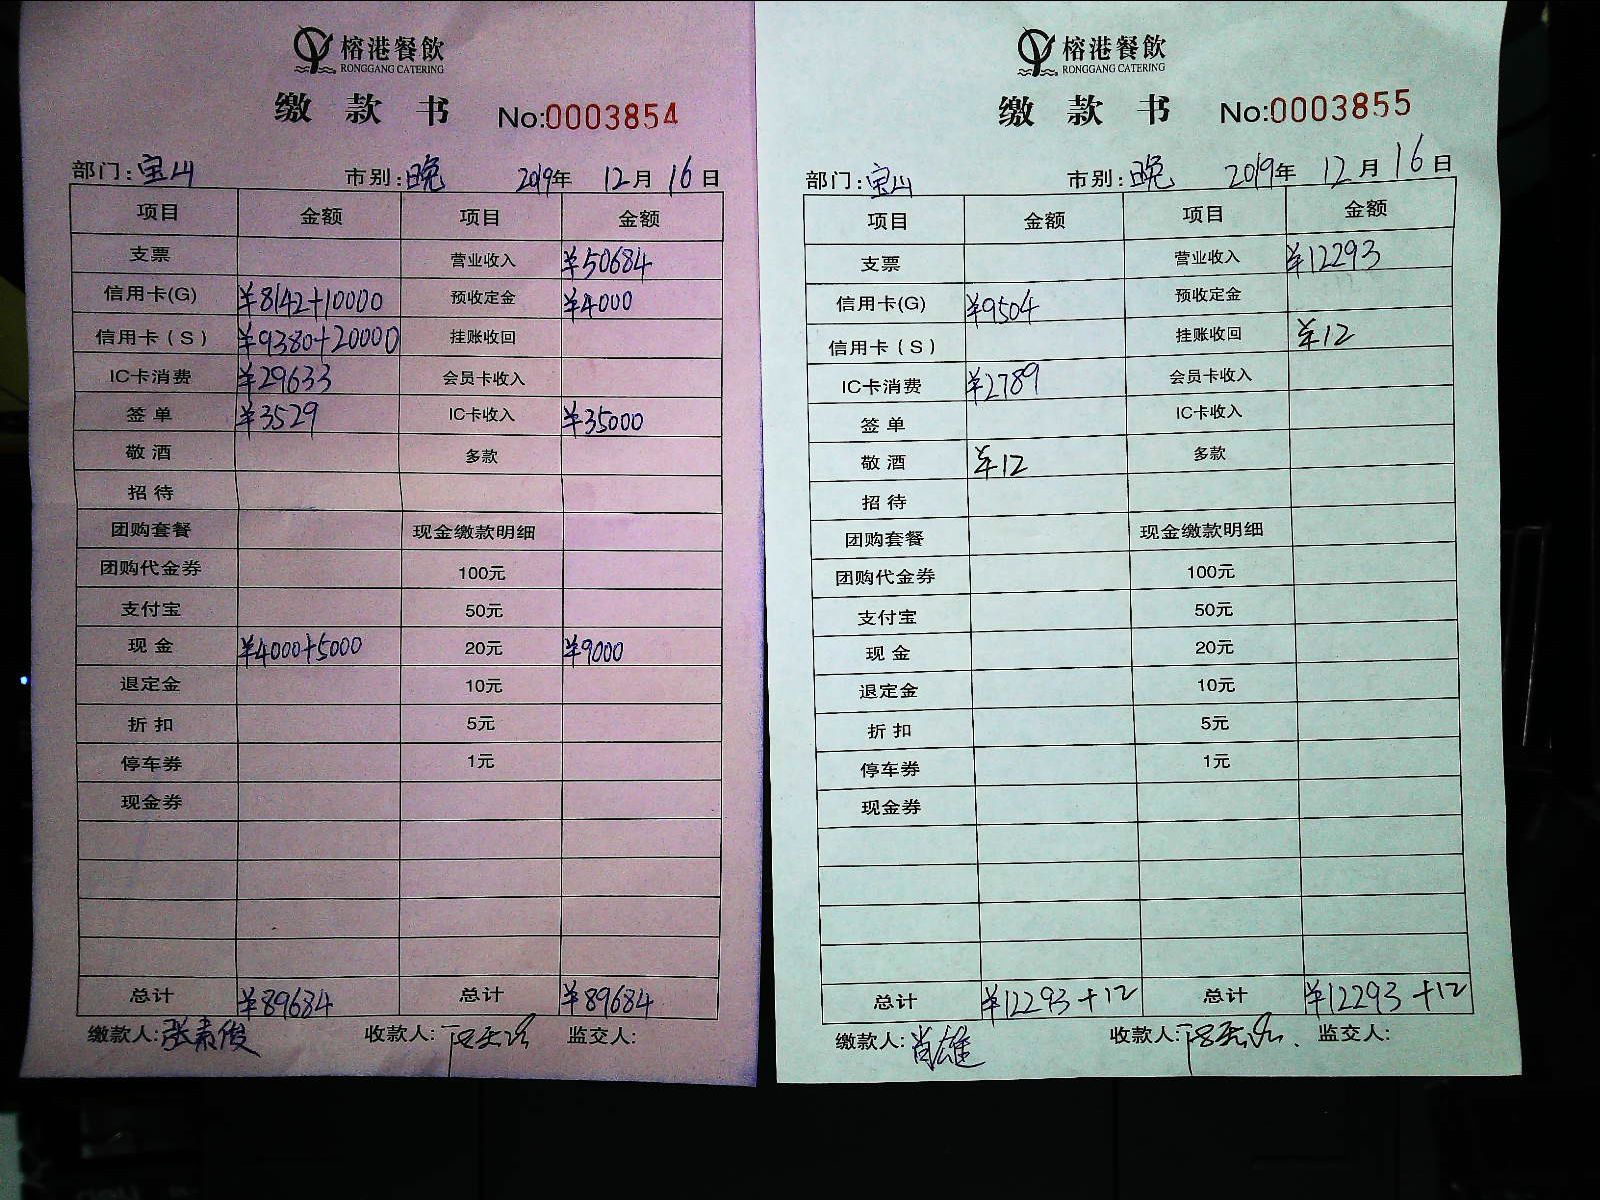 榕港餐飲
RONGGANG CATERING
缴款书 No:0003854
部门:宝山 市别:晚 2019年 12月 16日
项目 金额 项目 金额
支票 营业收入 ¥50684
信用卡(G) ¥8142+10000 预收定金 ¥4000
信用卡(S) ¥9380+20000 挂账收回
IC卡消费 ¥29633 会员卡收入
签单 ¥3529 IC卡收入 ¥35000
敬酒 多款
招待
团购套餐 现金缴款明细
团购代金券 100元
支付宝 50元
现金 ¥4000+5000 20元 ¥9000
退定金 10元
折扣 5元
停车券 1元
现金券
总计 ¥89684 总计 ¥89684
缴款人:张素俊 收款人: 监交人:
榕港餐飲
RONGGANG CATERING
缴款书 No:0003855
部门:宝山 市别:晚 2019年 12月 16日
项目 金额 项目 金额
支票 营业收入 ¥12293
信用卡(G) ¥9504 预收定金
信用卡(S) 挂账收回 ¥12
IC卡消费 ¥2789 会员卡收入
签单 IC卡收入
敬酒 ¥12 多款
招待
团购套餐 现金缴款明细
团购代金券 100元
支付宝 50元
现金 20元
退定金 10元
折扣 5元
停车券 1元
现金券
总计 ¥12293+12 总计 ¥12293+12
缴款人:肖雄 收款人: 监交人: